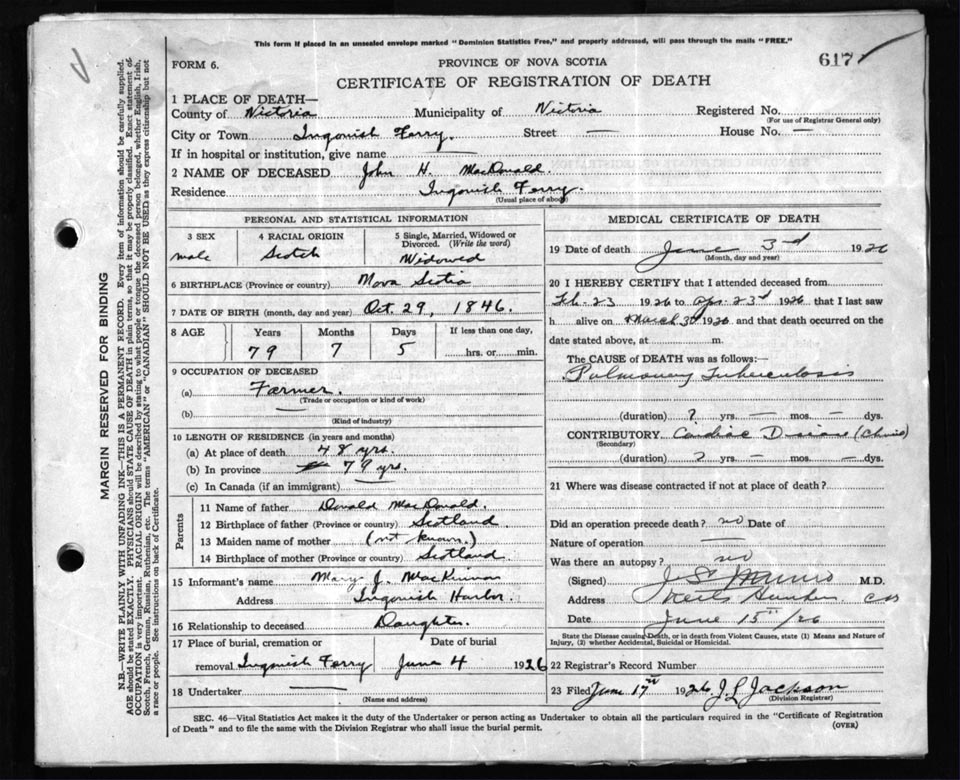 This form if placed in an unsealed envelope marked "Dominion Statistics Free," and properly addressed, will pass through the mails "FREE."
FORM 6.
PROVINCE OF NOVA SCOTIA
617
CERTIFICATE OF REGISTRATION OF DEATH
1 PLACE OF DEATH—
County of Victoria Municipality of Victoria Registered No.
(For use of Registrar General only)
City or Town Ingonish Ferry. Street — House No. —
If in hospital or institution, give name —
2 NAME OF DECEASED John H. MacDonald.
Residence Ingonish Ferry.
(Usual place of abode)
PERSONAL AND STATISTICAL INFORMATION
3 SEX
male
4 RACIAL ORIGIN
Scotch
5 Single, Married, Widowed or Divorced. (Write the word)
Widowed
6 BIRTHPLACE (Province or country) Nova Scotia
7 DATE OF BIRTH (month, day and year) Oct. 29, 1846.
8 AGE Years Months Days If less than one day,
79 7 5 hrs. or min.
9 OCCUPATION OF DECEASED
(a) Farmer.
(Trade or occupation or kind of work)
(b) —
(Kind of industry)
10 LENGTH OF RESIDENCE (in years and months)
(a) At place of death 48 yrs.
(b) In province 79 yrs.
(c) In Canada (if an immigrant) —
Parents
11 Name of father Donald MacDonald
12 Birthplace of father (Province or country) Scotland.
13 Maiden name of mother (not known.)
14 Birthplace of mother (Province or country) Scotland.
15 Informant's name Mary J. MacKinnon
Address Ingonish Harbor.
16 Relationship to deceased Daughter.
17 Place of burial, cremation or Date of burial
removal Ingonish Ferry June 4 1926
18 Undertaker —
(Name and address)
MEDICAL CERTIFICATE OF DEATH
19 Date of death June 3rd 1926
(Month, day and year)
20 I HEREBY CERTIFY that I attended deceased from
Feb. 23 1926 to Apr. 23rd 1926 that I last saw
h alive on March 30 1926 and that death occurred on the
date stated above, at m.
The CAUSE OF DEATH was as follows:—
Pulmonary Tuberculosis
(duration) ? yrs. — mos. — dys.
CONTRIBUTORY Cardiac Disease (Chronic)
(Secondary)
(duration) ? yrs. — mos. — dys.
21 Where was disease contracted if not at place of death?
Did an operation precede death? no Date of
Nature of operation —
Was there an autopsy? no
(Signed) Munro M.D.
Address Neils Harbor, CB
Date June 15th /26
State the Disease causing Death, or in death from Violent Causes, state (1) Means and Nature of Injury, (2) whether Accidental, Suicidal or Homicidal.
22 Registrar's Record Number
23 Filed June 17th 1926 J L Jackson
(Division Registrar)
SEC. 46—Vital Statistics Act makes it the duty of the Undertaker or person acting as Undertaker to obtain all the particulars required in the "Certificate of Registration
of Death" and to file the same with the Division Registrar who shall issue the burial permit.
(OVER)
MARGIN RESERVED FOR BINDING
N.B.—WRITE PLAINLY WITH UNFADING INK—THIS IS A PERMANENT RECORD. Every item of information should be carefully supplied.
AGE should be stated EXACTLY. PHYSICIANS should STATE CAUSE OF DEATH in plain terms, so that it may be properly classified. Exact statement of
OCCUPATION is very important. RACIAL ORIGIN will be described by stating to what people or tongue the deceased person belonged, whether English, Irish,
Scotch, French, German, Russian, Ruthenian, etc. The terms "AMERICAN" or "CANADIAN" SHOULD NOT BE USED as they express citizenship but not
a race or people. See instructions on back of Certificate.